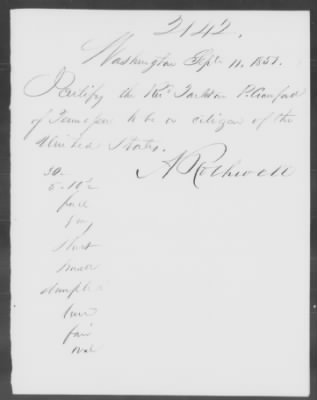 2142.
Washington Sept. 11. 1851.
I certify the Revd. Jackson P. Crawford
of Tennessee to be a citizen of the
United States.
A Rothwell
30.
5.10½
full
gray
short
small
dimple
fair
oval